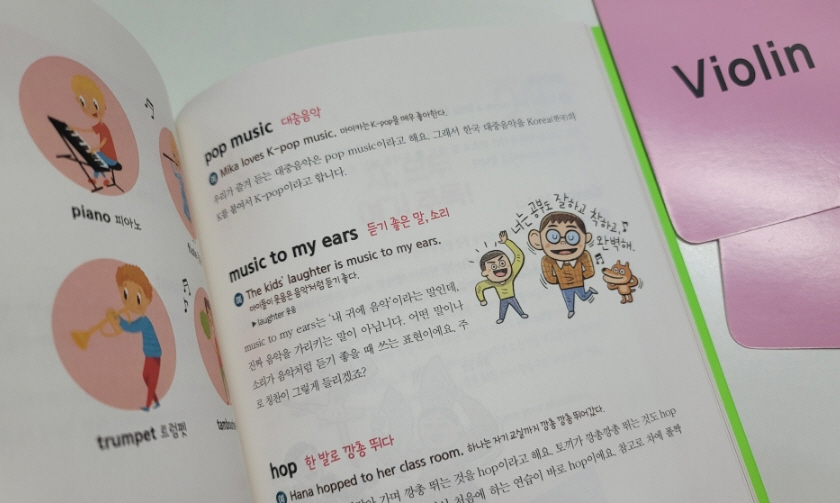 piano 피아노
trumpet 트럼펫
pop music 대중음악
Mika loves K-pop music. 마이카는 K-pop을 매우 좋아한다.
우리가 즐겨 듣는 대중음악은 pop music이라고 해요. 그래서 한국 대중음악을 Korea(한국)의
K를 붙여서 K-pop이라고 합니다.
music to my ears 듣기 좋은 말, 소리
The kids' laughter is music to my ears.
아이들의 웃음은 음악처럼 듣기 좋다.
▶ laughter 웃음
music to my ears는 '내 귀에 음악'이라는 말인데,
진짜 음악을 가리키는 말이 아닙니다. 어떤 말이나
소리가 음악처럼 듣기 좋을 때 쓰는 표현이에요. 주
로 칭찬이 그렇게 들리겠죠?
너는 공부도 잘하고 착하고,
완벽해.
hop 한 발로 깡충 뛰다
Hana hopped to her class room. 하나는 자기 교실까지 깡충 깡충 뛰어갔다.
가며 깡충 뛰는 것을 hop이라고 해요. 토끼가 깡충깡충 뛰는 것도 hop
처음에 하는 연습이 바로 hop이에요. 참고로 차에 폴짝
Violin